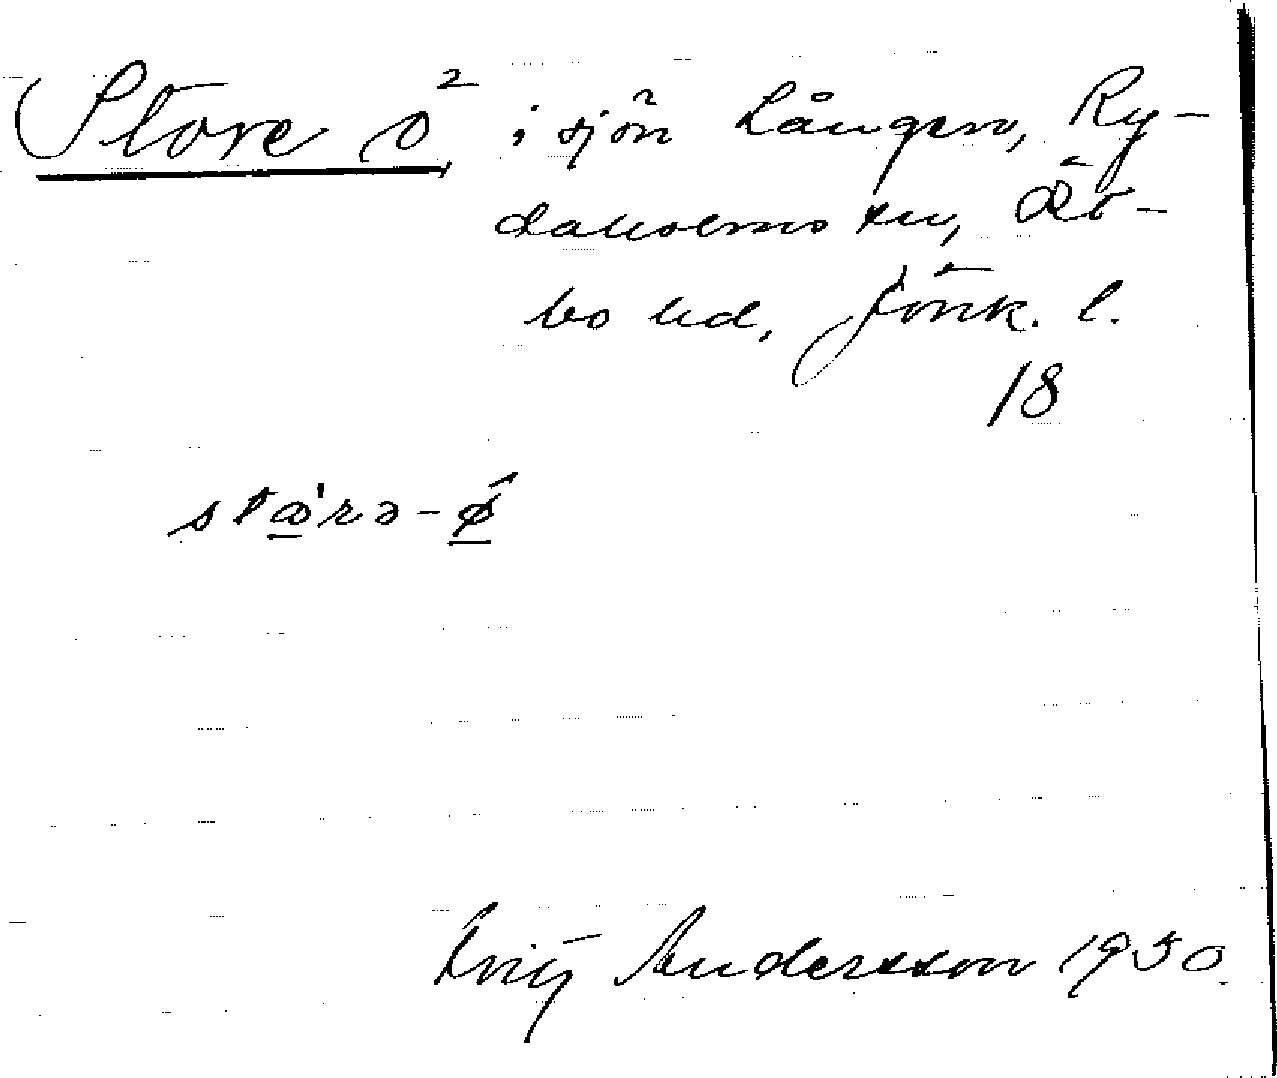 Store ö², i sjön Långern, Ry-
daholms sn, Öst-
bo hd, Jönk. l.
18
stɷ̀rə-ǿ
Fritz Andersson 1930.